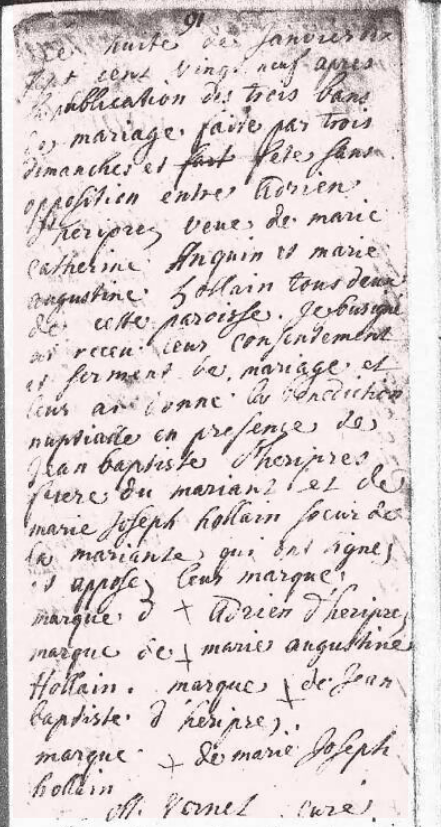 91
Le huite de janvier dix
sept cent vingt neuf apres
la publication des trois bans
de mariage faite par trois
dimanches et fete sans
opposition entre Adrien
d'heripres veuve de marie
Catherine Anquin et marie
augustine hollain tous deux
de cette paroisse. Je
ai receu leur consentement
et serment de mariage et
leur ai donne la benediction
nuptialle en presence de
Jean baptiste d'heripres
frere du mariant et de
marie Joseph hollain soeur de
la mariante qui ont signe
et appose leur marque.
marque d + Adrien d'heripres
marque de + marie augustine
Hollain. marque + de Jean
baptiste d'heripres.
marque + de marie Joseph
hollain
Vernel cure